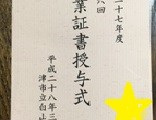 二十七年度
六回
業証書授与式
平成二十八年三
津市立白山